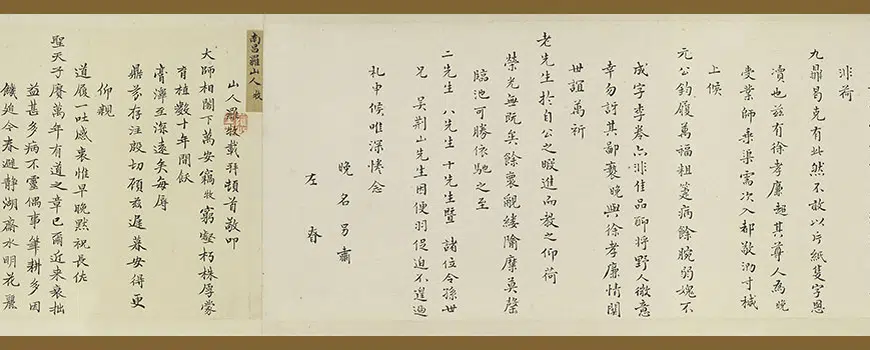 非荷
九鼎曷克有此然不敢以片紙隻字恩
瀆也茲有徐孝廉超其尊人為晚
受業師乘渠需次入都敬泐寸椷
上候
元公鈞履萬福粗箑病餘腕弱媿不
成字李卷亦非佳品聊將野人微意
幸勿訝其鄙褻晚與徐孝廉情關
世誼萬祈
老先生於自公之暇進而教之仰荷
榮光無既矣餘裏覼縷隃糜莫罄
臨池可勝依馳之至
二先生 八先生 十先生暨 諸位令孫世
兄 吳荊山先生因便羽促迫不遑通
札申候唯深悚念
晚名另肅
左春
南昌羅山人 牧
山人羅牧載拜頓首敬叩
大師相閣下萬安竊牧窮壑朽株厚蒙
育植數十年閒飫
膏澤至深遠矣每辱
鼎芳存注殷切顧茲遲暮安得更
仰親
道履一吐感衷惟早晚默祝長佐
聖天子賡萬年有道之章已爾近來衰拙
益甚多病不靈偶事筆耕多因
饑迫今春避靜湖齋水明花麗